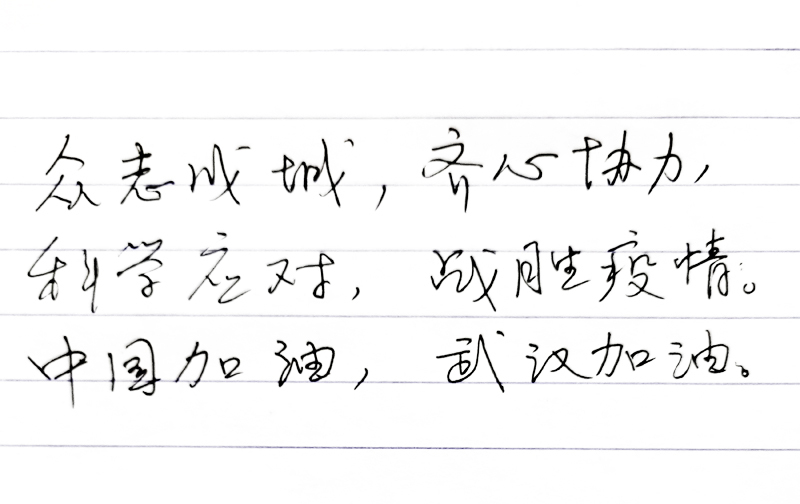 众志成城，齐心协力，
科学应对，战胜疫情。
中国加油，武汉加油。